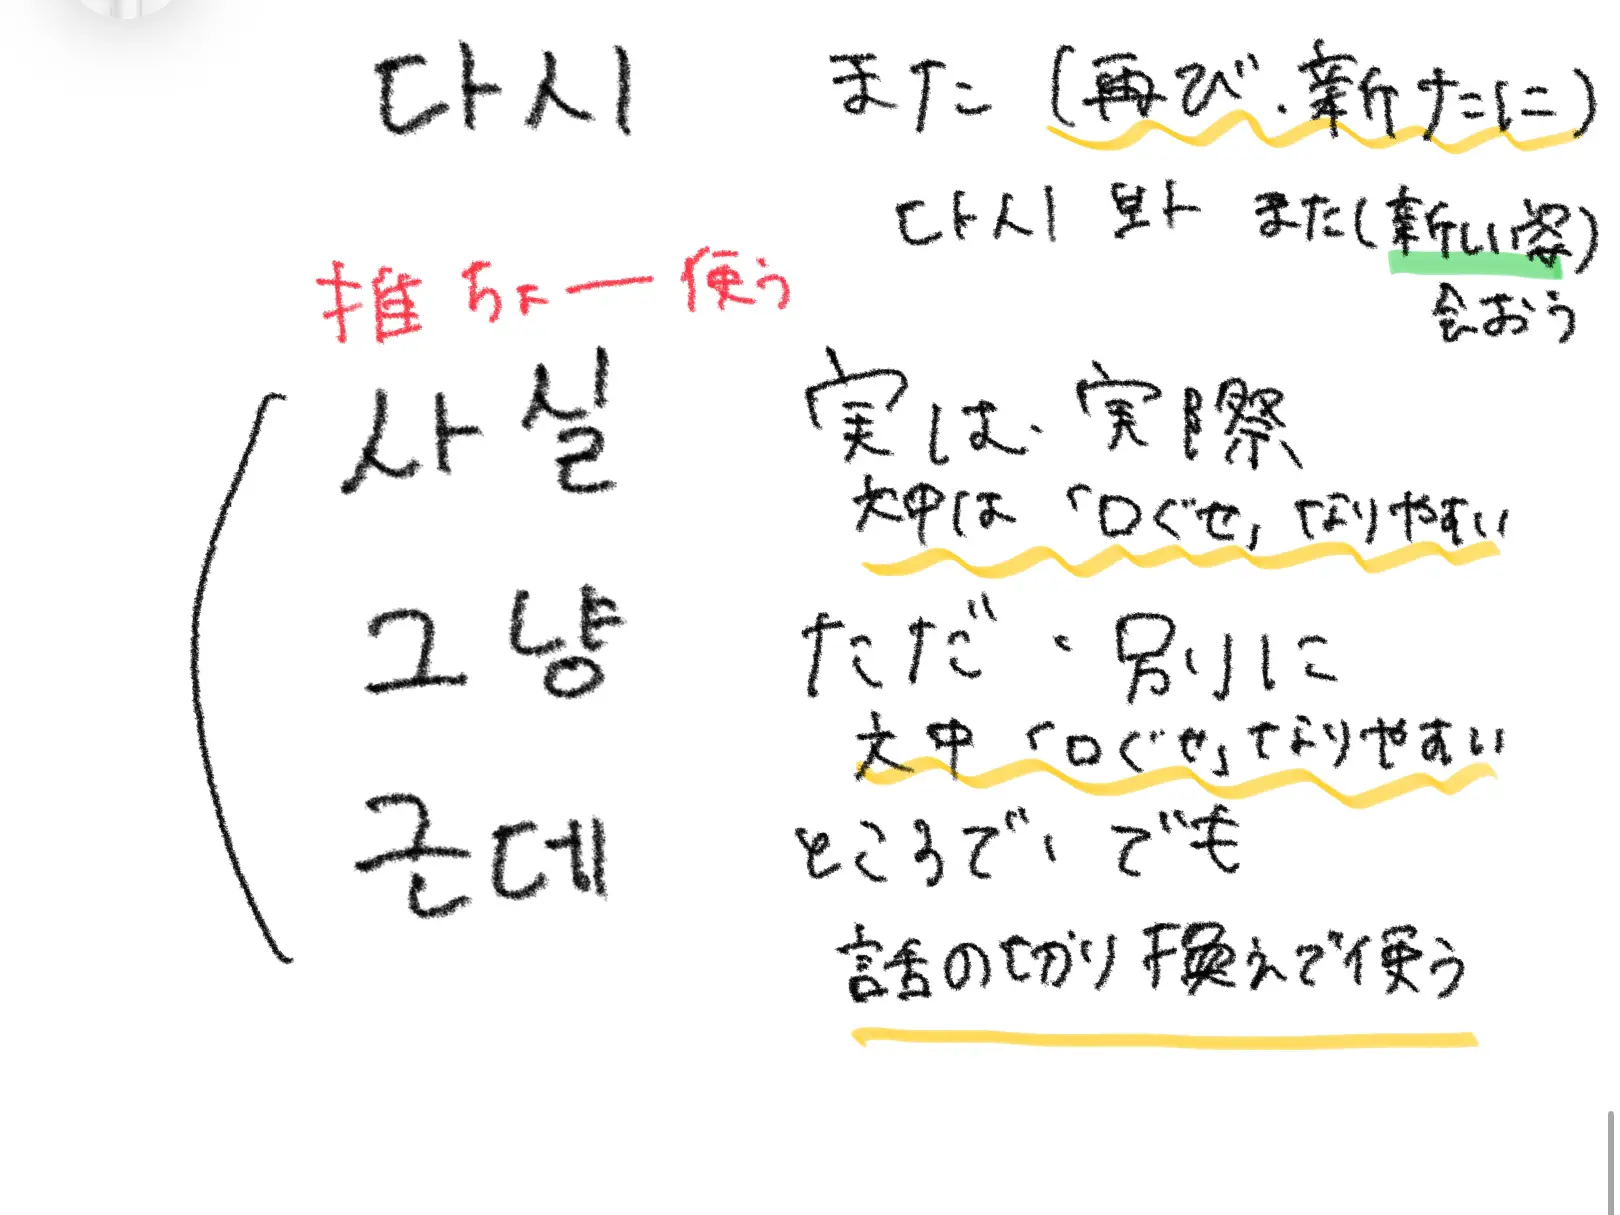 다시 また (再び・新たに)
다시 봐 また(新しい姿)
会おう
推 ちょー 使う
사실 実は・実際
文中は「口ぐせ」なりやすい
그냥 ただ、別に
文中「口ぐせ」なりやすい
근데 ところで、でも
話の切り換えで使う